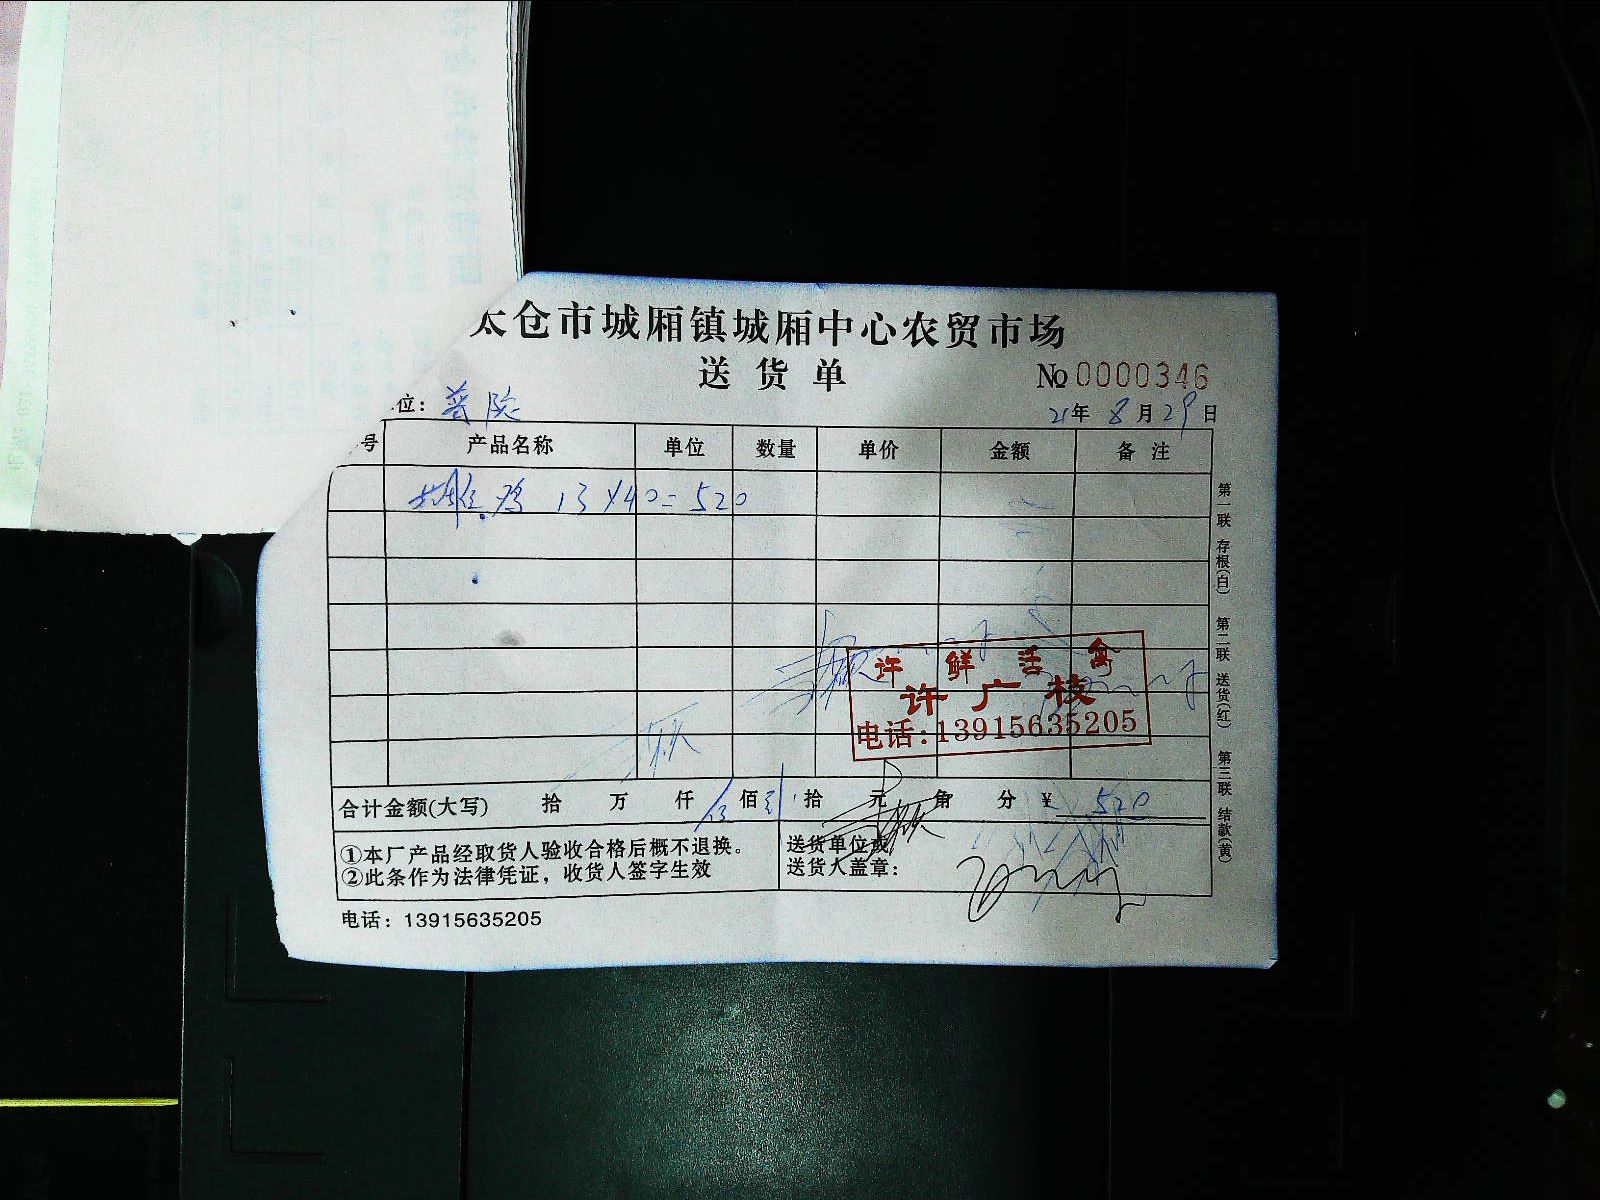 太仓市城厢镇城厢中心农贸市场
送货单
№ 0000346
位: 普院
21年 8月29日
号 产品名称 单位 数量 单价 金额 备注
鸡 13×40=520
许 鲜 活 禽
许广枝
电话:13915635205
合计金额(大写) 拾 万 仟 伍佰 贰拾 元 角 分 ¥ 520
①本厂产品经取货人验收合格后概不退换。
②此条作为法律凭证，收货人签字生效
送货单位或
送货人盖章:
电话: 13915635205
第一联 存根(白) 第二联 送货(红) 第三联 结款(黄)